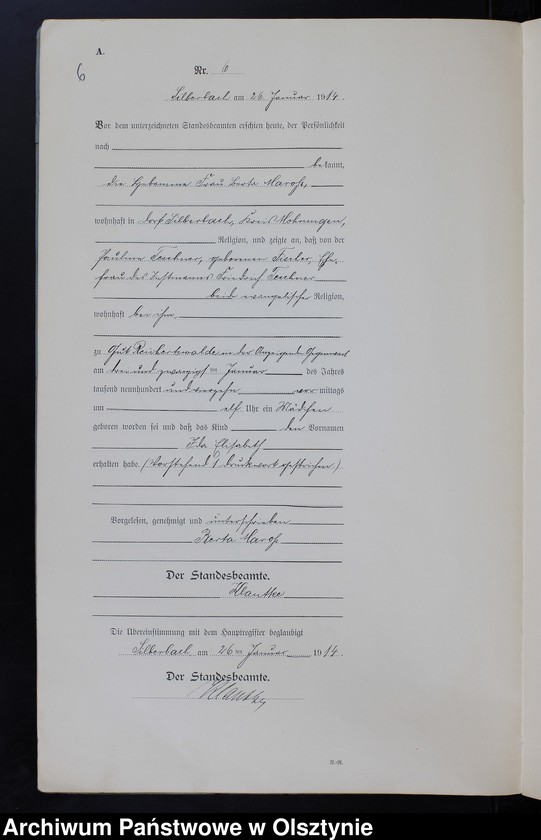 A.
6
Nr. 6
Silberbach am 26 Januar 1914.
Vor dem unterzeichneten Standesbeamten erschien heute, der Persönlichkeit
nach
bekannt,
die Hebamme Frau Berta Maroß,
wohnhaft in Dorf Silberbach, Kreis Mohrungen,
Religion, und zeigte an, daß von der
Pauline geborenen Ehe-
frau des Instmanns Friedrich
beide evangelischer Religion,
wohnhaft bei ihm,
zu Gut Reichertswalde in der Anzeigende Gegenwart
am drei und zwanzigsten Januar des Jahres
tausend neunhundert und vierzehn vormittags
um elf Uhr ein Mädchen
geboren worden sei und daß das Kind den Vornamen
Ida Elisabeth
erhalten habe. (Vorstehend 1 Druckwort gestrichen)
Vorgelesen, genehmigt und unterschrieben
Berta Maroß
Der Standesbeamte.
Klautke
Die Übereinstimmung mit dem Hauptregister beglaubigt
Silberbach am 26ten Januar 1914.
Der Standesbeamte.
Klautke
Archiwum Państwowe w Olsztynie